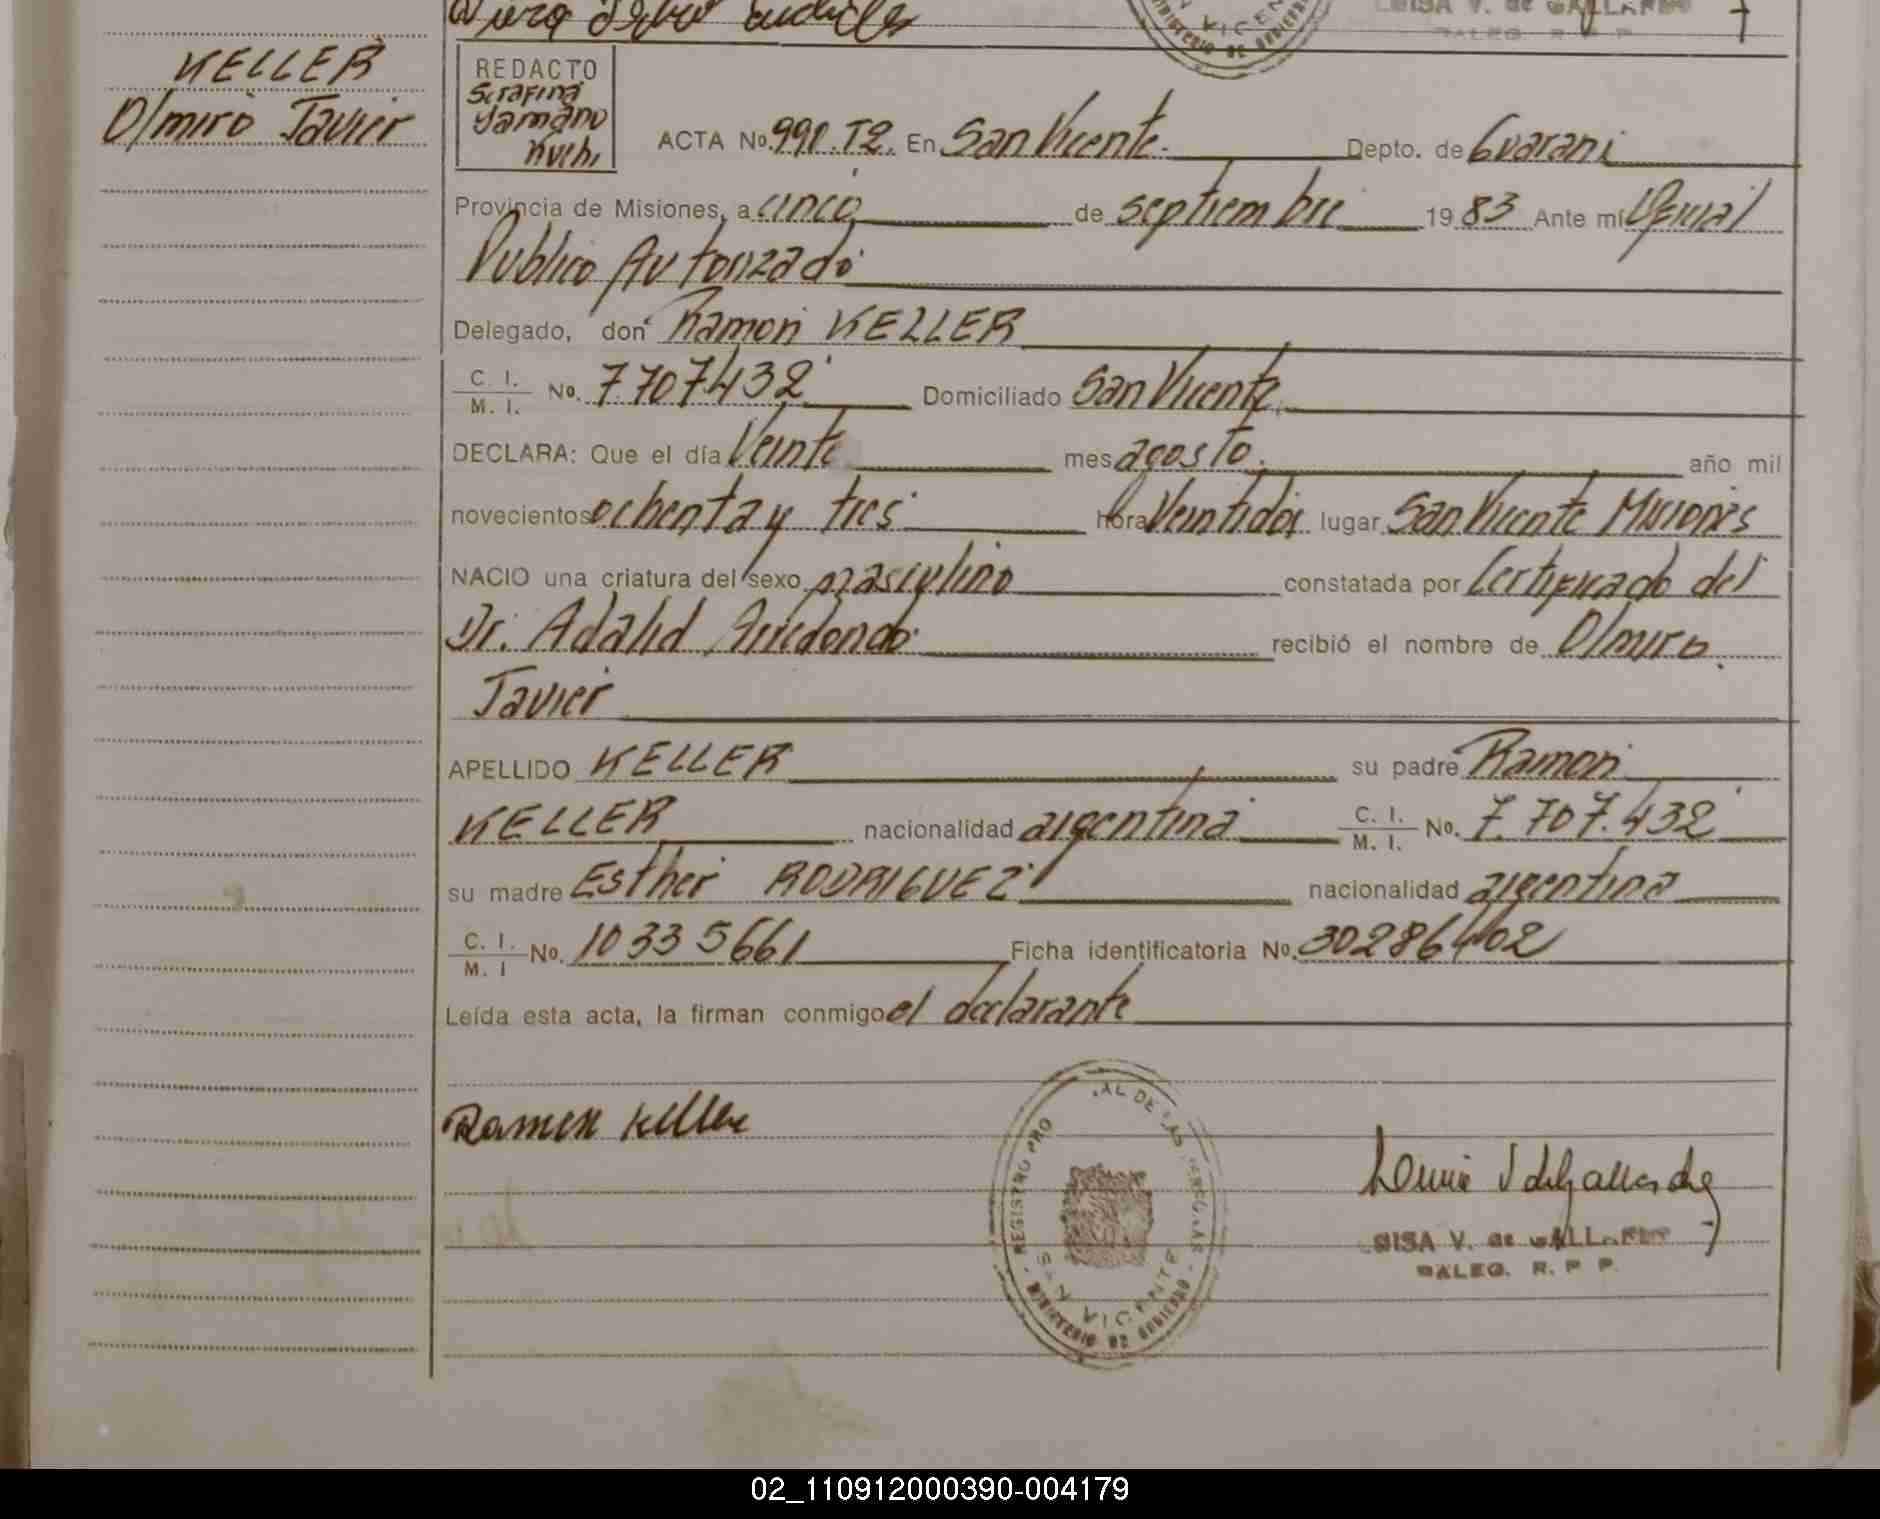 LUISA V. de GALLARDO
DALEG. R. P. P.
SAN VICENTE
MINISTERIO DE GOBIERNO
KELLER
Olmiro Javier
REDACTO
Serafina
ACTA No. 990.T2. En San Vicente. Depto. de Guarani
Provincia de Misiones, a cinco de septiembre 1983 Ante mí Oficial
Publico Autorizado
Delegado, don Ramon KELLER
C. I. / M. I. No. 7.707.432 Domiciliado San Vicente
DECLARA: Que el día Veinte mes agosto. año mil
novecientos ochenta y tres hora Veintidos lugar San Vicente Misiones
NACIO una criatura del sexo masculino constatada por Certificado del
Dr. Adalid Arredondo recibió el nombre de Olmiro
Javier
APELLIDO KELLER su padre Ramon
KELLER nacionalidad argentina C. I. / M. I. No. 7.707.432
su madre Esther RODRIGUEZ nacionalidad argentina
C. I. / M. I No. 10335661 Ficha identificatoria No. 30286402
Leída esta acta, la firman conmigo el declarante
Ramon Keller
REGISTRO PRO AL DE LAS PERSONAS
SAN VICENTE
MINISTERIO DE GOBIERNO
LUISA V. de GALLARDO
DALEG. R. P P.
02_110912000390-004179